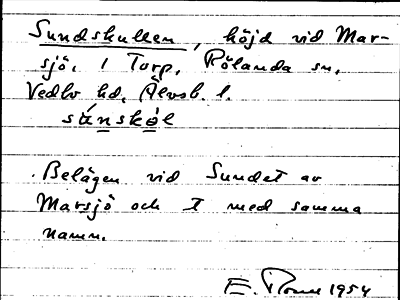 Sundskullen, höjd vid Mar-
sjö. i Torp, Rölanda sn.
Vedbo hd, Älvsb. l.
súnskòl
. Belägen vid Sundet av
Marsjö och t med samma
namn.
E. 1954